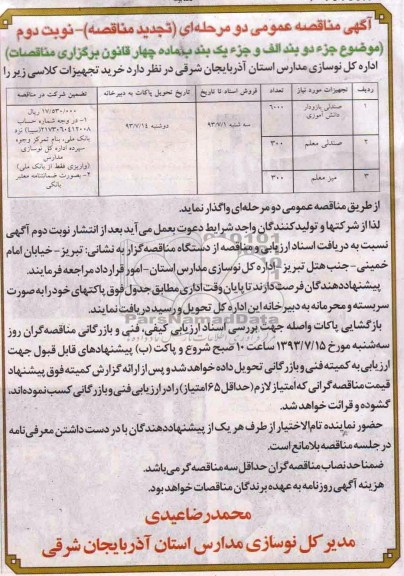 آگهی مناقصه عمومی دو مرحله‌ای (تجدید مناقصه)- نوبت دوم
(موضوع جزء دو بند الف و جزء یک بند ب ماده چهار قانون برگزاری مناقصات)
اداره کل نوسازی مدارس استان آذربایجان شرقی در نظر دارد خرید تجهیزات کلاسی زیر را
ردیف تجهیزات مورد نیاز تعداد فروش اسناد تا تاریخ تاریخ تحویل پاکات به دبیرخانه تضمین شرکت در مناقصه
۱ صندلی بازودار دانش آموزی ۶۰۰۰ سه شنبه ۹۳/۷/۱ دوشنبه ۹۳/۷/۱۴
۲ صندلی معلم ۳۰۰
۳ میز معلم ۳۰۰
۱۷/۵۳۰/۰۰۰ ریال
۱- در وجه شماره حساب
۲۱۷۳۰۶۰۴۱۲۰۰۸ (سیبا) نزد
بانک ملی، بنام تمرکز وجوه
سپرده اداره کل نوسازی
مدارس
(واریزی فقط از بانک ملی)
۲- بصورت ضمانتنامه معتبر
بانکی
از طریق مناقصه عمومی دو مرحله‌ای واگذار نماید.
لذا از شرکتها و تولیدکنندگان واجد شرایط دعوت بعمل می‌آید بعد از انتشار نوبت دوم آگهی
نسبت به دریافت اسناد ارزیابی و مناقصه از دستگاه مناقصه‌گزار به نشانی: تبریز- خیابان امام
خمینی- جنب هتل تبریز- اداره کل نوسازی مدارس استان- امور قرارداد مراجعه فرمایند.
پیشنهاددهندگان فرصت دارند تا پایان وقت اداری مطابق جدول فوق پاکتهای خود را به صورت
سربسته و محرمانه به دبیرخانه این اداره کل تحویل و رسید دریافت نمایند.
بازگشایی پاکات واصله جهت بررسی اسناد ارزیابی کیفی، فنی و بازرگانی مناقصه‌گران روز
سه‌شنبه مورخ ۱۳۹۳/۷/۱۵ ساعت ۱۰ صبح شروع و پاکت (ب) پیشنهادهای قابل قبول جهت
ارزیابی به کمیته فنی و بازرگانی تحویل داده خواهد شد و پس از ارائه گزارش کمیته فوق پیشنهاد
قیمت مناقصه‌گرانی که امتیاز لازم (حداقل ۶۵ امتیاز) را در ارزیابی فنی و بازرگانی کسب نموده‌اند،
گشوده و قرائت خواهد شد.
حضور نماینده تام‌الاختیار از طرف هر یک از پیشنهاددهندگان با در دست داشتن معرفی‌نامه
در جلسه مناقصه بلامانع است.
ضمنا حد نصاب مناقصه‌گران حداقل سه مناقصه‌گر می‌باشد.
هزینه آگهی روزنامه به عهده برندگان مناقصات خواهد بود.
محمدرضا عیدی
مدیر کل نوسازی مدارس استان آذربایجان شرقی